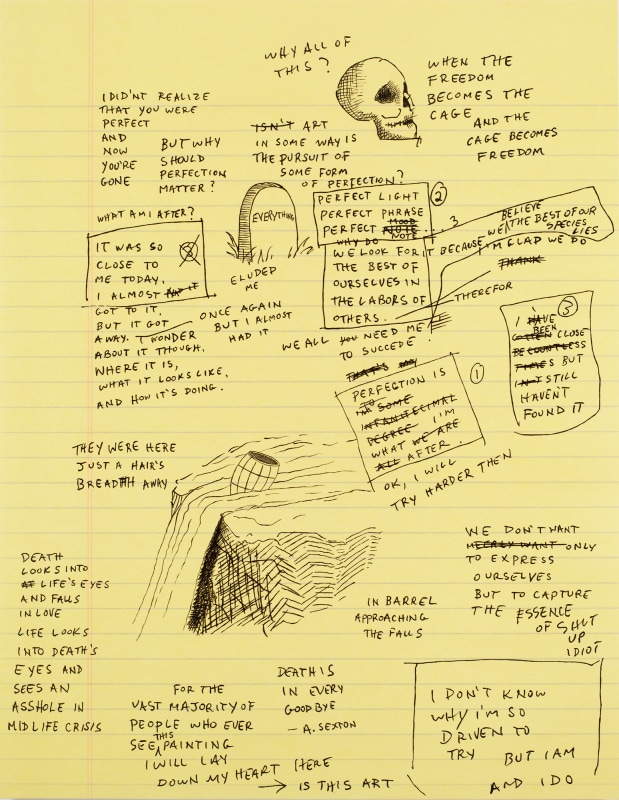 WHY ALL OF
THIS?
WHEN THE
FREEDOM
BECOMES THE
CAGE
AND THE
CAGE BECOMES
FREEDOM
I DID'NT REALIZE
THAT YOU WERE
PERFECT
AND
NOW
YOU'RE
GONE
BUT WHY
SHOULD
PERFECTION
MATTER?
ISN'T ART
IN SOME WAY IS
THE PURSUIT OF
SOME FORM
OF PERFECTION?
WHAT AM I AFTER?
IT WAS SO
CLOSE TO
ME TODAY,
I ALMOST HAD IT
GOT TO IT,
BUT IT GOT
AWAY. I WONDER
ABOUT IT THOUGH,
WHERE IT IS,
WHAT IT LOOKS LIKE,
AND HOW IT'S DOING.
EVERYTHING
ELUDED
ME
ONCE AGAIN
BUT I ALMOST
HAD IT
2
PERFECT LIGHT
PERFECT PHRASE
MOOD
PERFECT NOTE...
WHY DO NOTE
3
WE LOOK FOR IT BECAUSE WE BELIEVE THE BEST OF OUR
SPECIES
LIES
I'M GLAD WE DO
THANK
THE BEST OF
OURSELVES IN
THE LABORS OF
OTHERS.
THEREFOR
WE ALL YOU NEED ME
TO SUCCEDE.
THAT'S MY
1
PERFECTION IS
TO
I'M SOME
INFANITECIMAL
DEGREE I'M
WHAT WE ARE
ALL AFTER.
OK, I WILL
TRY HARDER THEN
3
I HAVE
BEEN
GOTTEN CLOSE
BE COUNTLESS
TIMES BUT
I STILL
HAVEN'T
FOUND IT
THEY WERE HERE
JUST A HAIR'S
BREADTH AWAY
IN BARREL
APPROACHING
THE FALLS
WE DON'T WANT
MEERLY WANT ONLY
TO EXPRESS
OURSELVES
BUT TO CAPTURE
THE ESSENCE
OF SHUT
UP
IDIOT
DEATH
LOOKS INTO
AT LIFE'S EYES
AND FALLS
IN LOVE
LIFE LOOKS
INTO DEATH'S
EYES AND
SEES AN
ASSHOLE IN
MIDLIFE CRISIS
FOR THE
VAST MAJORITY OF
PEOPLE WHO EVER
SEE THIS PAINTING
I WILL LAY
DOWN MY HEART HERE
→ IS THIS ART
DEATH IS
IN EVERY
GOODBYE
– A. SEXTON
I DON'T KNOW
WHY I'M SO
DRIVEN TO
TRY BUT I AM
AND I DO